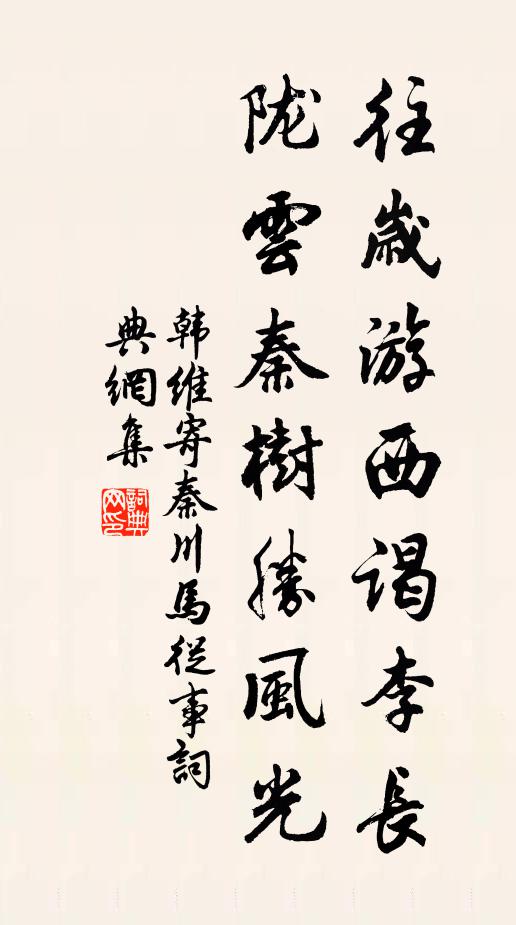 往歲游西谒李長
陇雲秦樹勝風光
韩維寄秦川馬從事詞
典網集
詞典
网印